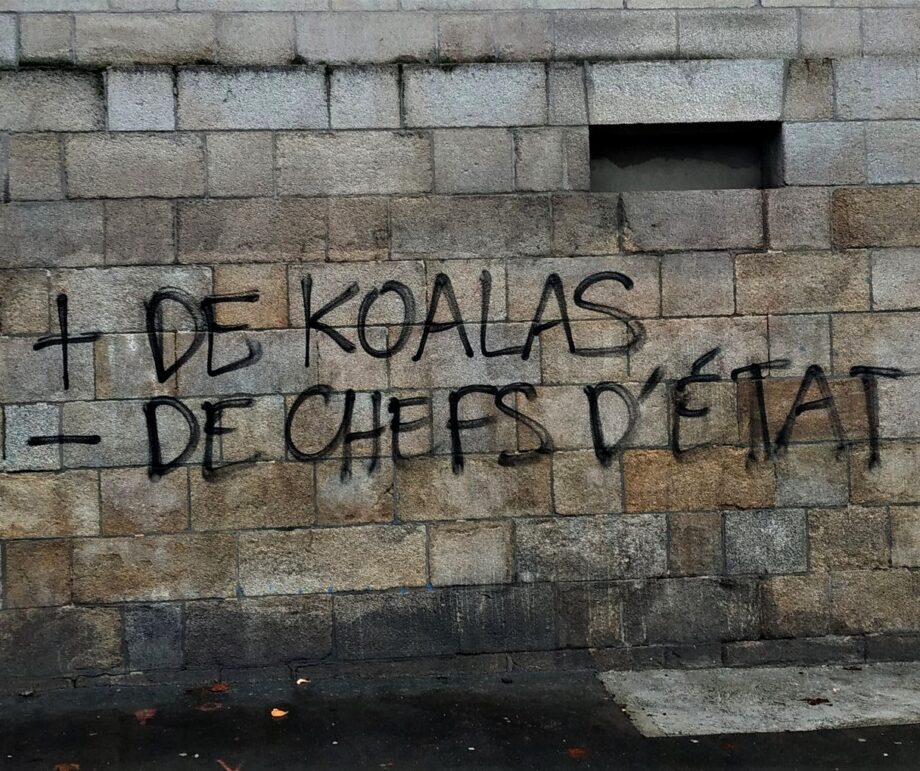 + DE KOALAS
- DE CHEFS D'ÉTAT